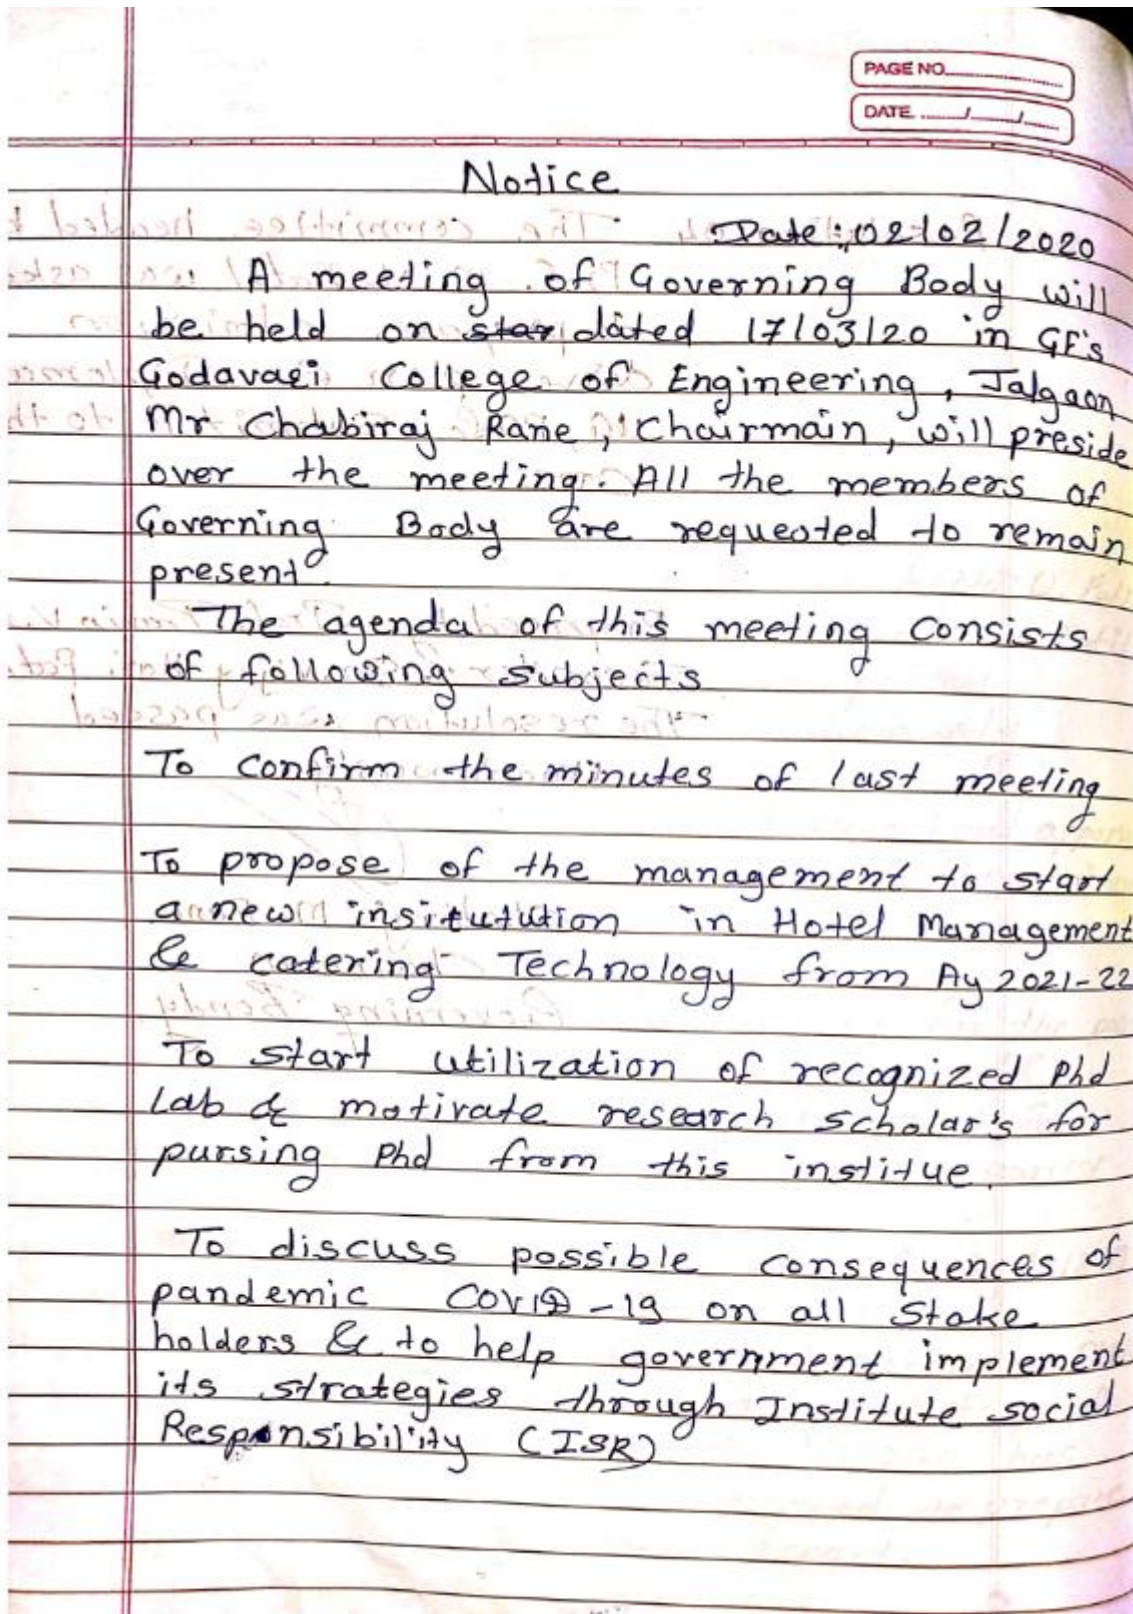 PAGE NO.
DATE / /
Notice
Date : 02/02/2020
A meeting of Governing Body will
be held on star dated 17/03/20 in GF's
Godavari College of Engineering, Jalgaon
Mr Chabiraj Rane, Chairmain, will preside
over the meeting. All the members of
Governing Body are requested to remain
present
The agenda of this meeting consists
of following subjects
To confirm the minutes of last meeting
To propose of the management to start
a new insitutution in Hotel Management
& catering Technology from Ay 2021-22
To start utilization of recognized Phd
Lab & motivate research scholar's for
pursing Phd from this institue.
To discuss possible consequences of
pandemic COVID-19 on all Stake
holders & to help government implement
its strategies through Institute social
Responsibility (ISR)